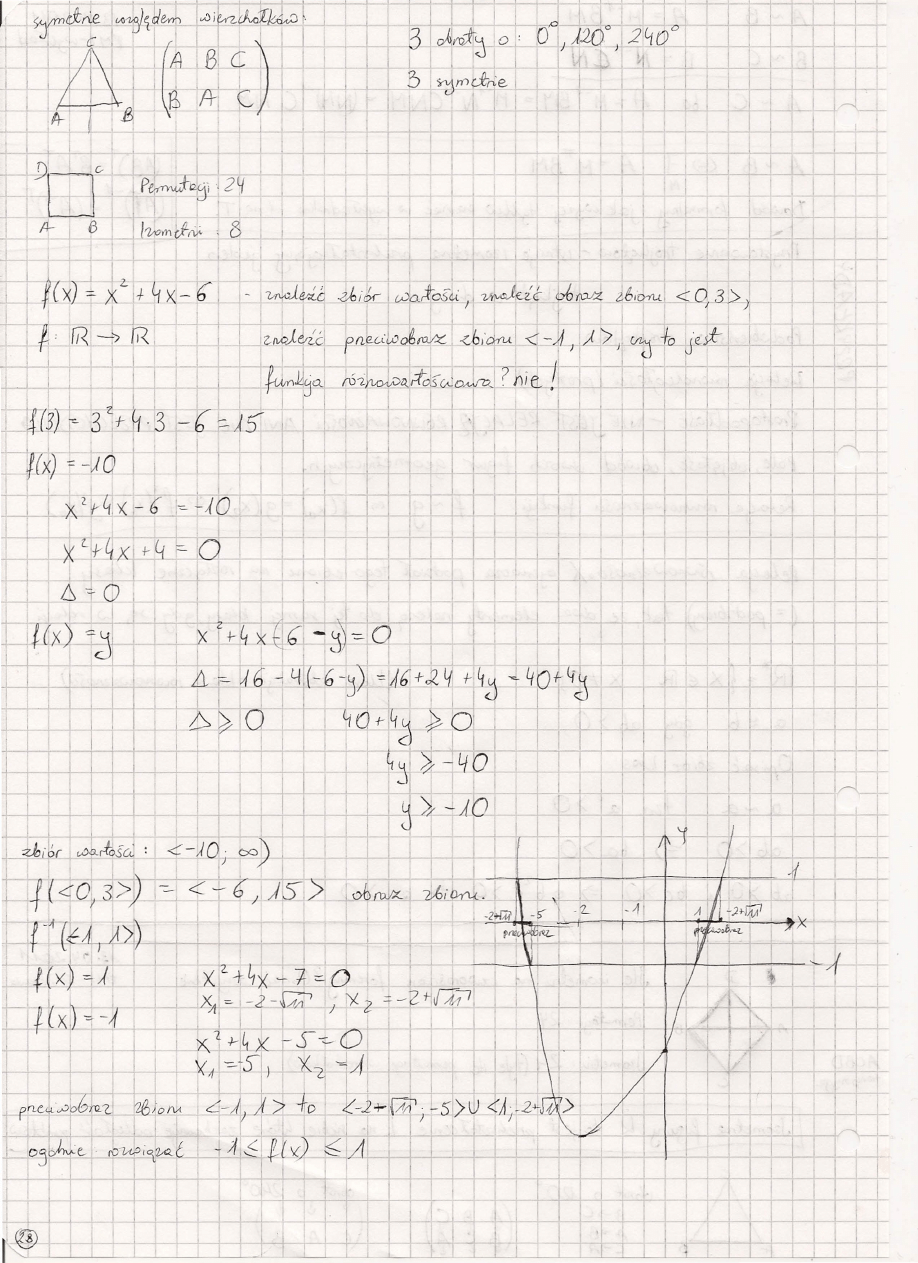 symetrie względem wierzchołków:
3 obroty o: 0°, 120°, 240°
3 symetrie
C
A B
( A B C )
( B A C )
D C
A B
Permutacji: 24
Izometrii: 8
f(x) = x² + 4x - 6 - znaleźć zbiór wartości, znaleźć obraz zbioru <0,3>,
f: ℝ → ℝ znaleźć przeciwobraz zbioru <-1, 1>, czy to jest
funkcja różnowartościowa? nie!
f(3) = 3² + 4·3 - 6 = 15
f(x) = -10
x² + 4x - 6 = -10
x² + 4x + 4 = 0
Δ = 0
f(x) = y x² + 4x (-6 - y) = 0
Δ = 16 - 4(-6-y) = 16 + 24 + 4y = 40 + 4y
Δ ⩾ 0 40 + 4y ⩾ 0
4y ⩾ -40
y ⩾ -10
zbiór wartości: <-10; ∞)
f(<0,3>) = <-6, 15> obraz zbioru.
f⁻¹(<-1, 1>)
f(x) = 1 x² + 4x - 7 = 0
x₁ = -2-√11 ; x₂ = -2+√11
f(x) = -1
x² + 4x - 5 = 0
x₁ = -5, x₂ = 1
y
1
-2+√11 -5 -2 -1 1 -2+√11 x
przeciwobraz przeciwobraz
-1
przeciwobraz zbioru <-1, 1> to <-2+√11; -5> ∪ <1; -2+√11>
ogólnie rozwiązać -1 ≤ f(x) ≤ 1
28